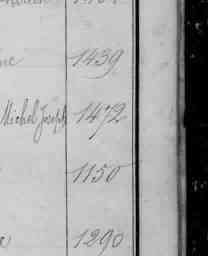 1439
Michel Joseph 1472
1150
1290